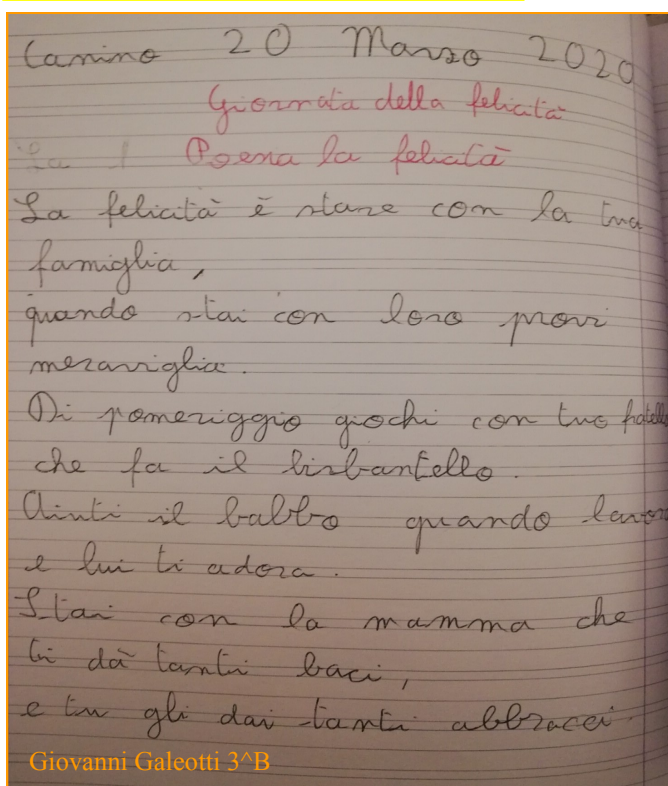 Canino 20 Marzo 2020
Giornata della felicità
Poema la felicità
La felicità è stare con la tua
famiglia,
quando stai con loro provi
meraviglia.
Di pomeriggio giochi con tuo fratello
che fa il birbantello.
Aiuti il babbo quando lavora
e lui ti adora.
Stai con la mamma che
ti dà tanti baci,
e tu gli dai tanti abbracci.
Giovanni Galeotti 3^B